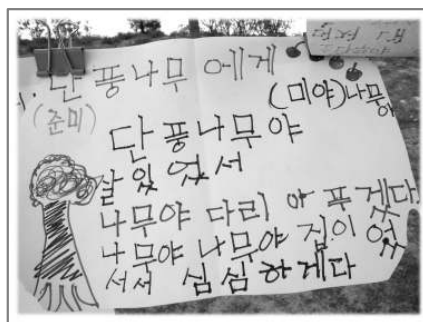 단풍나무에게
(준미)
(미야)나뭉아
단풍나무야
날있었서
나무야 다리 아푸겠다
나무야 나무야 집이 없
서서 심심하게다